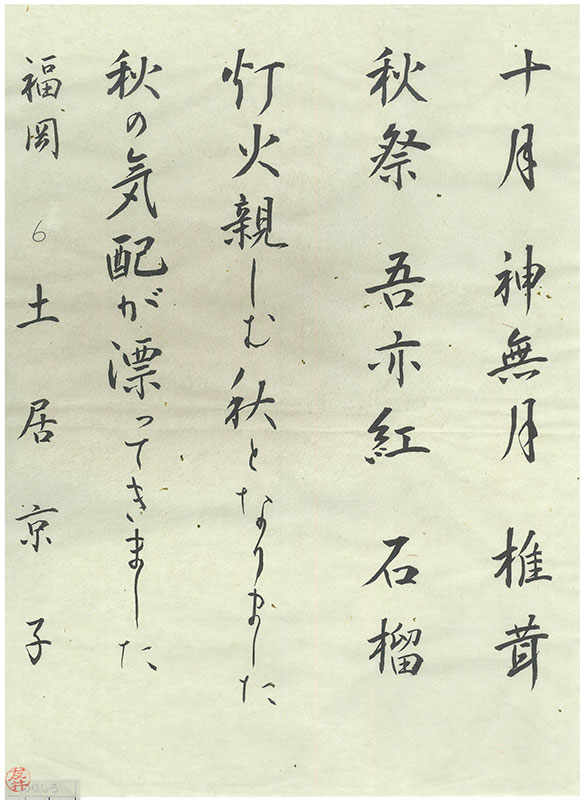 十月 神無月 椎茸
秋祭 吾亦紅 石榴
灯火親しむ秋となりました
秋の気配が漂ってきました
福岡 6 土居京子
のりしろ